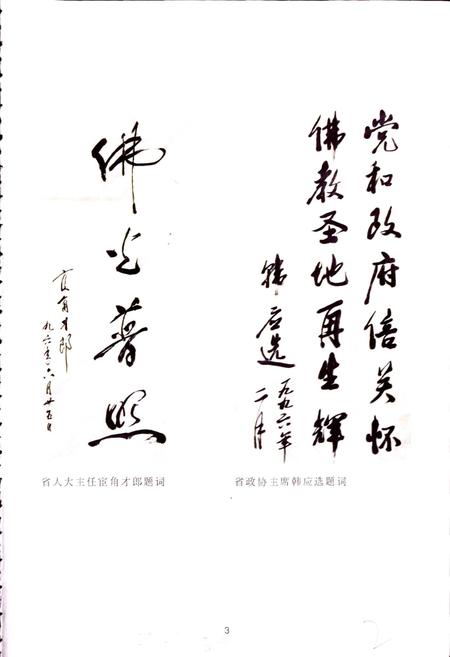 党和政府倍关怀
佛教圣地再生辉
韩应选
一九九六年
二月
佛光普照
宦角才郎
九六年六月廿五日
省政协主席韩应选题词
省人大主任宦角才郎题词
3
2